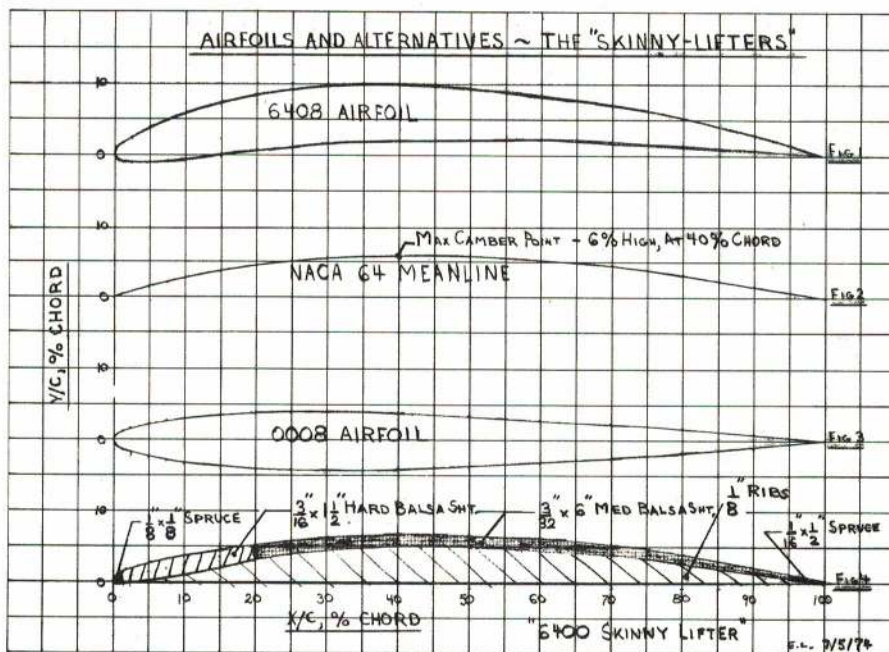 AIRFOILS AND ALTERNATIVES ~ THE "SKINNY-LIFTERS"
10
6408 AIRFOIL
0
FIG 1
10
MAX CAMBER POINT - 6% HIGH, AT 40% CHORD
NACA 64 MEANLINE
0
FIG 2
Y/C, % CHORD
10
0
0008 AIRFOIL
FIG 3
10
1/8" x 1/8" SPRUCE
3/16" x 1 1/2" HARD BALSA SHT.
3/32" x 6" MED BALSA SHT.
1/8" RIBS
1/16" x 1/2" SPRUCE
0
FIG 4
0 10 20 30 40 50 60 70 80 90 100
X/C, % CHORD
"6400 SKINNY LIFTER"
/5/74